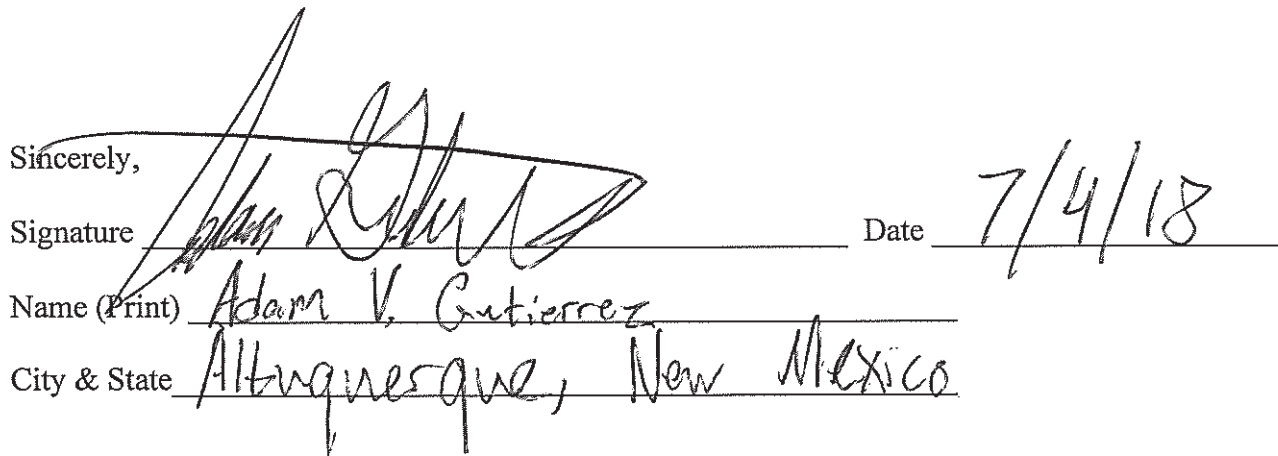 Sincerely,
Signature Adam Date 7/4/18
Name (Print) Adam V. Gutierrez
City & State Albuquerque, New Mexico